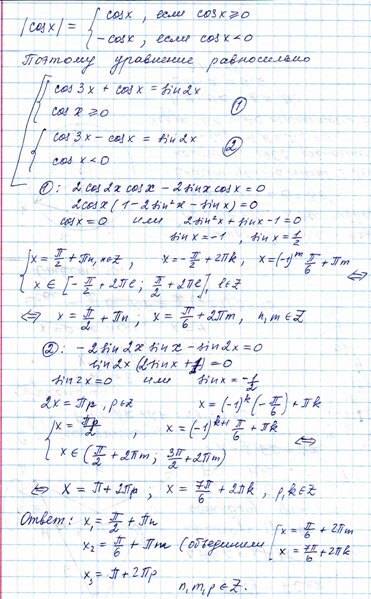 |cosx| = { cosx, если cosx≥0
−cosx, если cosx<0
Поэтому уравнение равносильно
cos3x + cosx = sin2x
cosx ≥ 0 ①
cos3x − cosx = sin2x
cosx < 0 ②
①: 2cos2x cosx − 2sinx cosx = 0
2cosx (1−2sin²x − sinx) = 0
cosx = 0 или 2sin²x + sinx − 1 = 0
sinx = −1, sinx = 1/2
{ x = π/2 + πn, n∈Z, x = −π/2 + 2πk, x = (−1)^m π/6 + πm
x ∈ [−π/2 + 2πl; π/2 + 2πl], l∈Z ⇔
⇔ x = π/2 + πn, x = π/6 + 2πm, n,m∈Z
②: −2sin2x sinx − sin2x = 0
sin2x (2sinx + 1) = 0
sin2x = 0 или sinx = −1/2
2x = πp, p∈Z x = (−1)^k (−π/6) + πk
{ x = πp/2, x = (−1)^(k+1) π/6 + πk
x ∈ (π/2 + 2πm; 3π/2 + 2πm) ⇔
⇔ x = π + 2πp, x = 7π/6 + 2πk, p,k∈Z
Ответ: x₁ = π/2 + πn
x₂ = π/6 + πm (объединили [ x = π/6 + 2πm
x = 7π/6 + 2πk
x₃ = π + 2πp
n,m,p ∈ Z.